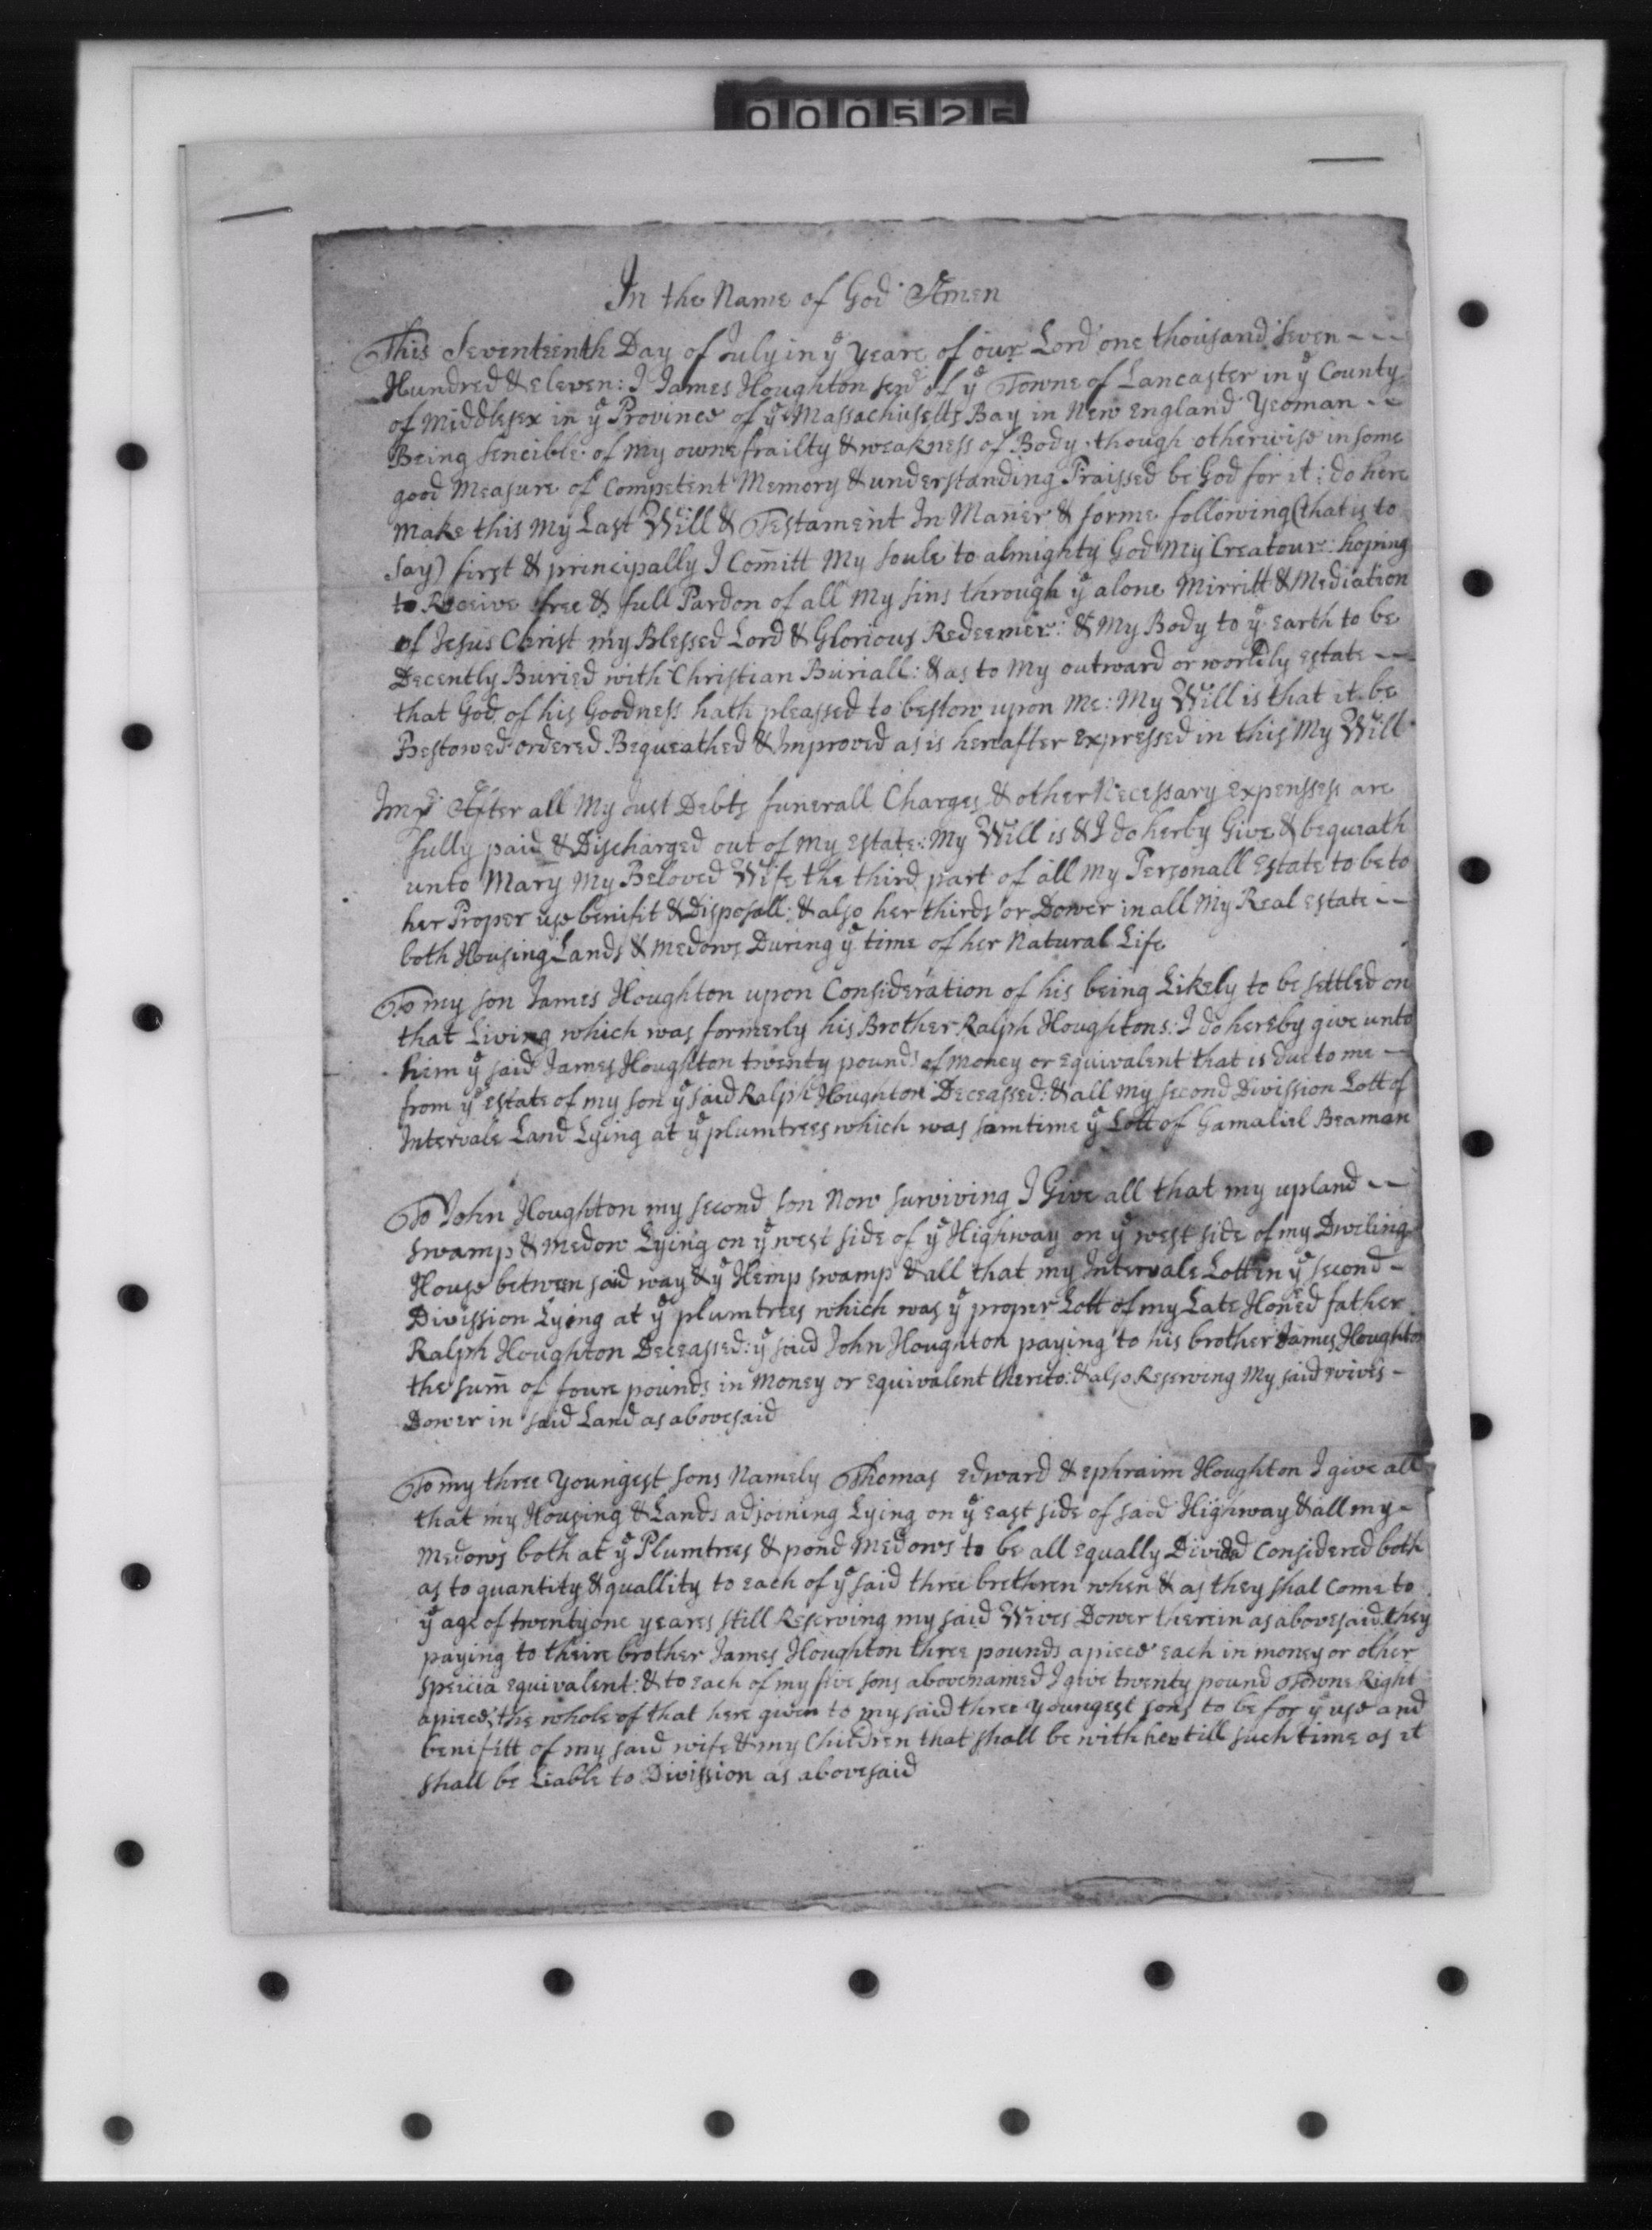 000525
In the Name of God Amen
This Seventeenth Day of July in ye Yeare of our Lord one thousand Seven - - -
Hundred & eleven: I James Houghton senr of ye Towne of Lancaster in ye County
of Middlesex in ye Province of ye Massachusetts Bay in New England Yeoman - -
Being sencible of my owne frailty & weakness of Body though otherwise in some
good Measure of Competent Memory & understanding Praissed be God for it: do here
make this my Last Will & Testament In Maner & forme following (that is to
say) first & principally I Com̄itt My soule to almighty God My Creatour: hoping
to Receive free & full Pardon of all My sins through ye alone Mirritt & Mediation
of Jesus Christ my Blessed Lord & Glorious Redeemer: & My Body to ye earth to be
Decently Buried with Christian Buriall: & as to My outward or worldly estate - -
that God of his Goodness hath pleassed to bestow upon Me: My Will is that it be
Bestowed ordered Bequeathed & Improved as is hereafter expressed in this My Will
Impr After all My Just Debts funerall Charges & other Necessary expensses are
fully paid & Discharged out of my estate: My Will is & I do herby Give & bequeath
unto Mary My Beloved Wife the third part of all my Personall Estate to be to
her Proper use benifit & Disposall: & also her thirds or Dower in all My Real estate - -
both Housing Lands & Medows During ye time of her Natural Life
To my son James Houghton upon Consideration of his being Likely to be settled on
that Living which was formerly his Brother Ralph Houghtons: I do hereby give unto
him ye said James Houghton twenty pounds of money or equivalent that is due to me -
from ye estate of my son ye said Ralph Houghton Deceassed: & all my second Division Lott of
Intervale Land Lying at ye plumtrees which was somtime ye Lott of Gamaliel Beaman
To John Houghton my second son Now surviving I Give all that my upland - -
swamp & Medow Lying on ye west side of ye Highway on ye west side of my Dweling
House between said way & ye Hemp swamp & all that my Intervale Lott in ye second -
Divission Lying at ye plumtrees which was ye proper Lott of my Late Honed father
Ralph Houghton Deceassed: ye said John Houghton paying to his brother James Houghton
the sum̄ of foure pounds in Money or equivalent thereto: & also Reserving My said wives -
Dower in said Land as abovesaid
To my three Youngest sons Namely Thomas Edward & Ephraim Houghton I give all
that my Housing & Lands adjoining Lying on ye east side of said Highway & all my -
Medows both at ye Plumtrees & pond Medows to be all equally Divided Considered both
as to quantity & quallity to each of ye said three brethren when & as they shal Come to
ye age of twenty one yeares still Reserving my said Wives Dower therein as abovesaid they
paying to theire brother James Houghton three pounds apiece each in money or other
speicia equivalent: & to each of my five sons abovenamed I give twenty pound Towne Right
apiece, the whole of that here given to my said three youngest sons to be for ye use and
benifitt of my said wife & my Children that shall be with her till such time as it
shall be Liable to Division as abovesaid